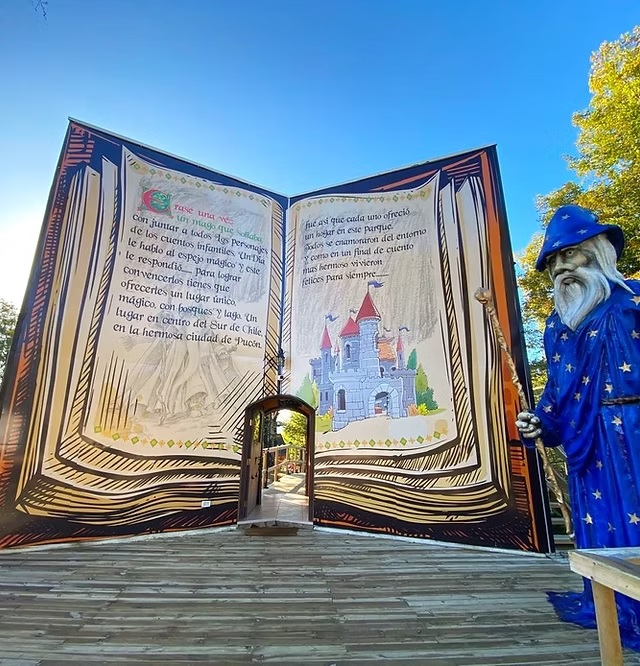 Erase una vés
un mago que soñaba
con juntar a todos los personajes
de los cuentos infantiles. Un Día
le hablo al espejo mágico y este
le respondió-- para lograr
convencerlos tienes que
ofrecertes un lugar único,
mágico, con bosques y lago. Un
lugar en centro del Sur de Chile,
en la hermosa ciudad de Pucón.
fue así que cada uno ofreció
un hogar en este parque.
Todos se enamoraron del entorno
y como en un final de cuento
mas hermoso vivieron
felices para siempre--